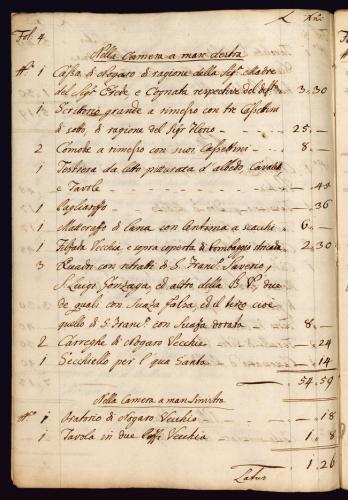 Fol. 4.
L Xni
Nella Camera a man destra
N.º 1 Cassa di Nogaro di ragione della Sig.ª Madre
del Sig.r Erede e Cognata respective del def.to 3.30
1 Scrittorio grande a rimesso con tre Cassettini
di sotto, di ragione del Sig.r 25.—
2 Comode a rimesso con suoi Cassettini 8.—
1 Testiera da letto pitturata d'albedo Cavalet
e Tavole —.45
1 Pagliasso —.36
1 Matterasso di Lana con Antima a scacchi 6.—
1 Vecchia e sopra coperta di bombaggio 2.30
3 Quadri con ritratti di S. Franc.º Saverio,
S. Luigi Gonzaga, ed altro della B. V. due
de quali con Suaza falsa ed il terzo cioè
quello di S. Franc.º con Suaza dorata 8.—
2 Carreghe di Nogaro Vecchie —.24
1 Secchiello per l'qua Santa —.14
54.59
Nella Camera a man sinistra
N.º 1 Oratorio di Nogaro Vecchio —.18
1 Tavola in due Vecchia 1.8
1.26
Latus